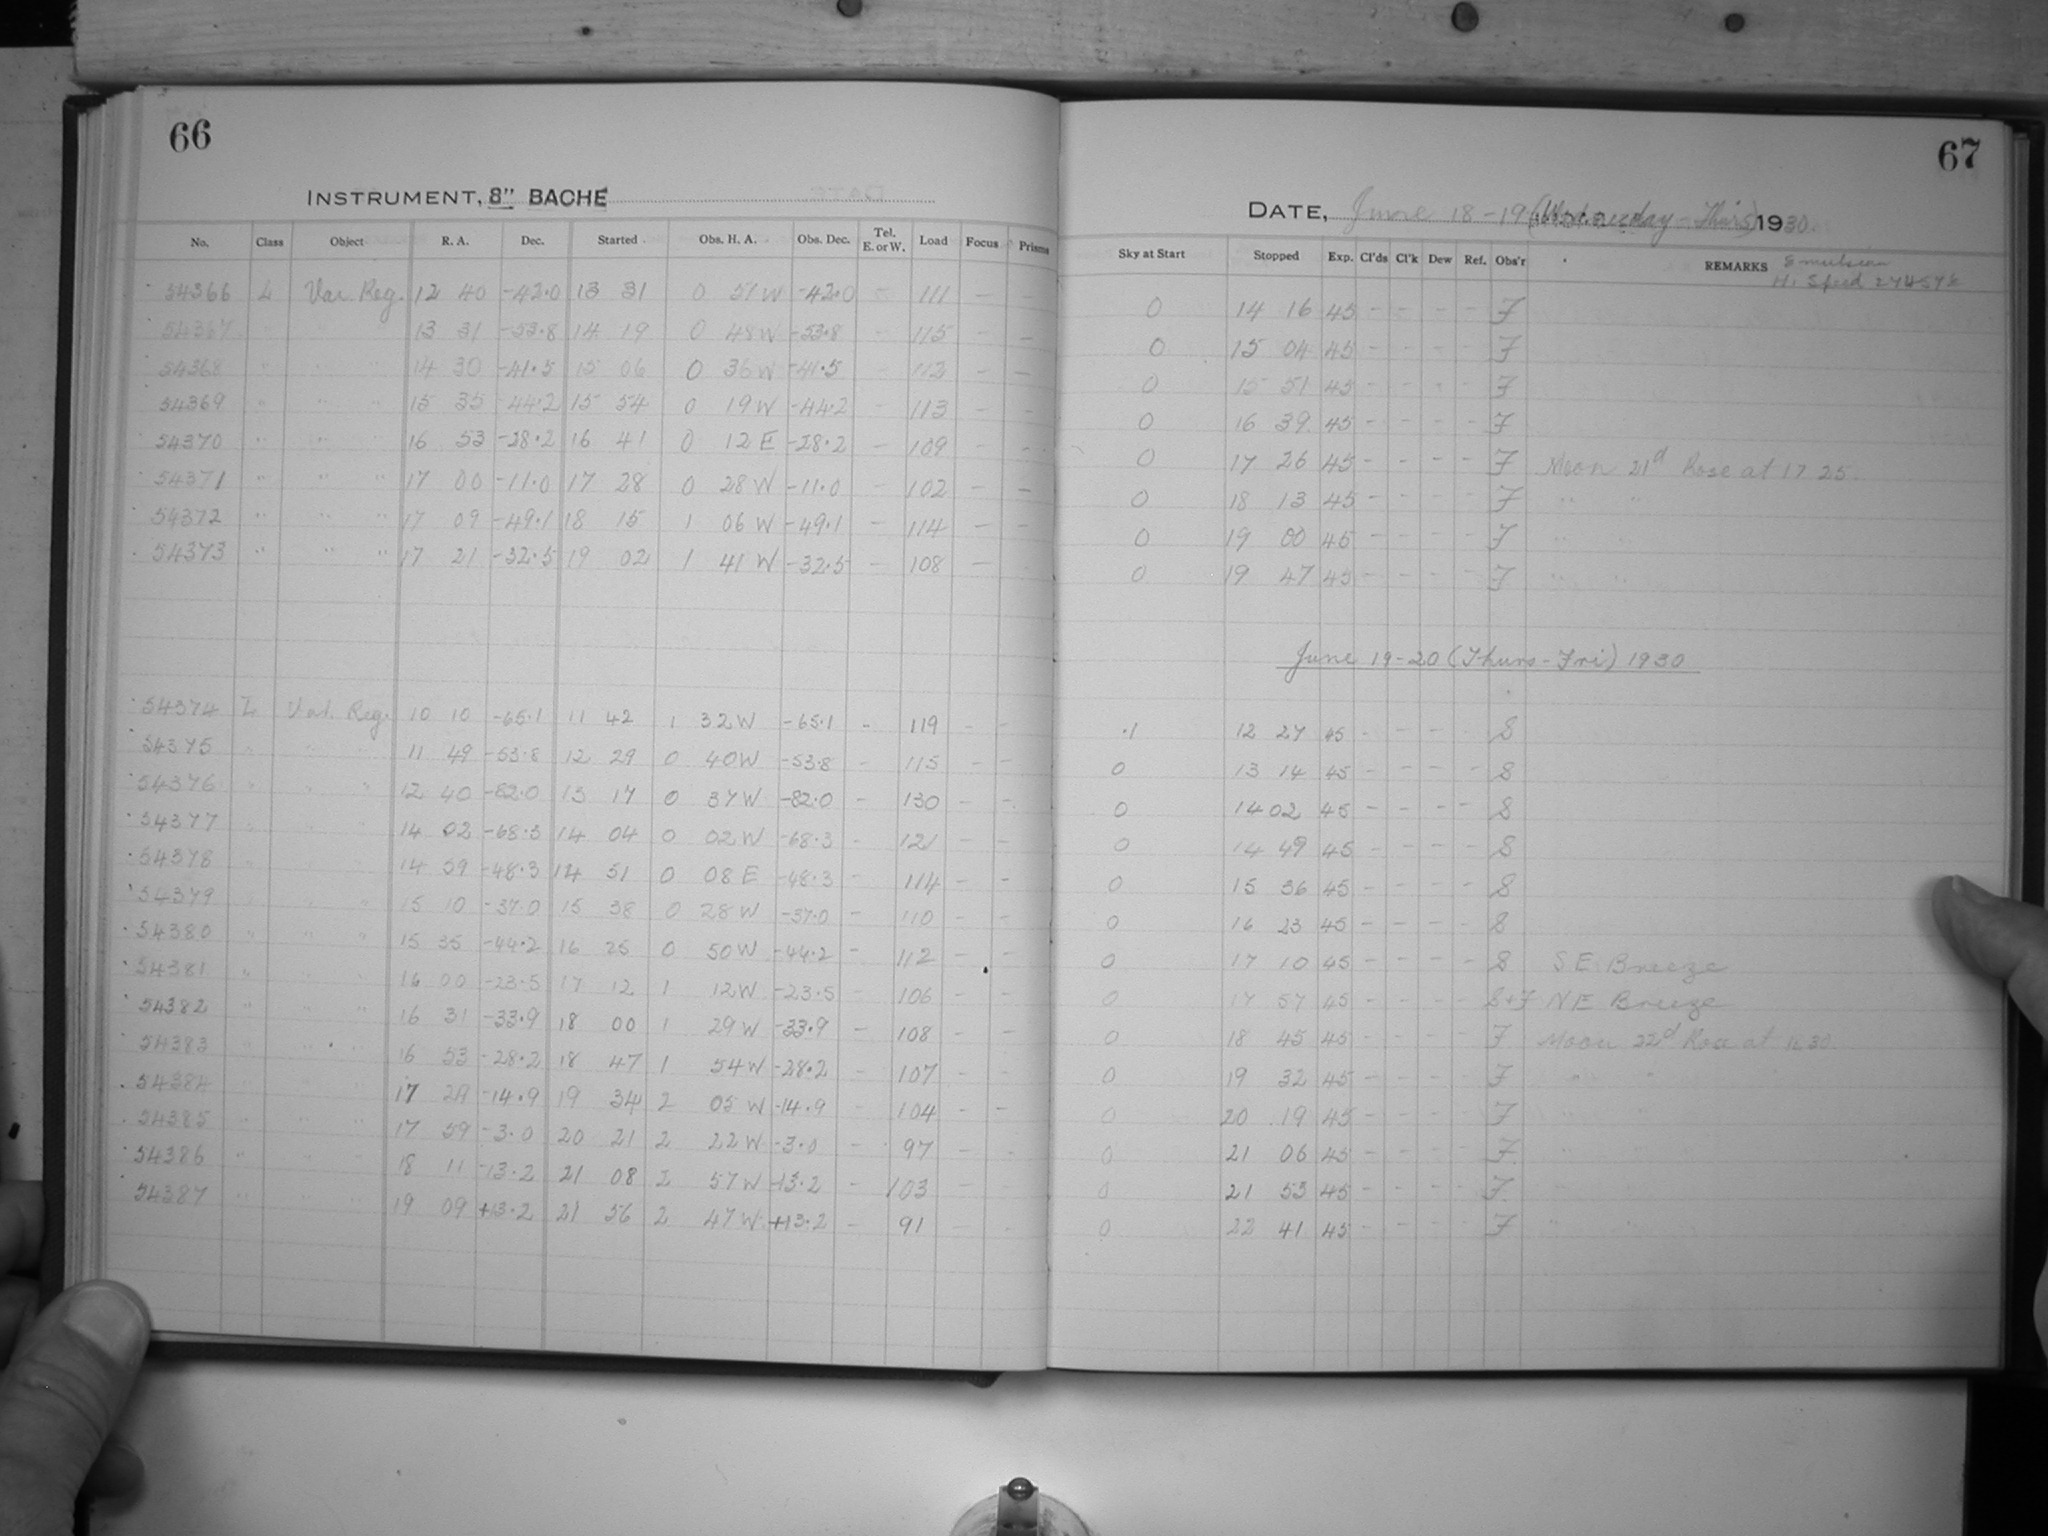 66
INSTRUMENT, 8" BACHE
No. Class Object R. A. Dec. Started Obs. H. A. Obs. Dec. Tel. E. or W. Load Focus Prisms
54366 L Var. Reg. 12 40 -42.0 13 31 0 51 W -42.0 - 111 - -
54367 " " " 13 31 -53.8 14 19 0 48 W -53.8 - 115 - -
54368 " " " 14 30 -41.5 15 06 0 36 W -41.5 - 112 - -
54369 " " " 15 35 -44.2 15 54 0 19 W -44.2 - 113 - -
54370 " " " 16 53 -28.2 16 41 0 12 E -28.2 - 109 - -
54371 " " " 17 00 -11.0 17 28 0 28 W -11.0 - 102 - -
54372 " " " 17 09 -49.1 18 15 1 06 W -49.1 - 114 - -
54373 " " " 17 21 -32.5 19 02 1 41 W -32.5 - 108 - -
54374 L Var. Reg. 10 10 -65.1 11 42 1 32 W -65.1 - 119 - -
54375 " " " 11 49 -53.8 12 29 0 40 W -53.8 - 115 - -
54376 " " " 12 40 -82.0 13 17 0 37 W -82.0 - 130 - -
54377 " " " 14 02 -68.3 14 04 0 02 W -68.3 - 121 - -
54378 " " " 14 59 -48.3 14 51 0 08 E -48.3 - 114 - -
54379 " " " 15 10 -37.0 15 38 0 28 W -37.0 - 110 - -
54380 " " " 15 35 -44.2 16 25 0 50 W -44.2 - 112 - -
54381 " " " 16 00 -23.5 17 12 1 12 W -23.5 - 106 - -
54382 " " " 16 31 -33.9 18 00 1 29 W -33.9 - 108 - -
54383 " " " 16 53 -28.2 18 47 1 54 W -28.2 - 107 - -
54384 " " " 17 29 -14.9 19 34 2 05 W -14.9 - 104 - -
54385 " " " 17 59 -3.0 20 21 2 22 W -3.0 - 97 - -
54386 " " " 18 11 -13.2 21 08 2 57 W -13.2 - 103 - -
54387 " " " 19 09 +13.2 21 56 2 47 W +13.2 - 91 - -
67
DATE, June 18-19 (Wednesday-Thurs) 1930.
Sky at Start Stopped Exp. Cl'ds Cl'k Dew Ref. Obs'r REMARKS Emulsion
Hi Speed
0 14 16 45 - - - - F
0 15 04 45 - - - - F
0 15 51 45 - - - - F
0 16 39 45 - - - - F
0 17 26 45 - - - - F Moon 21d Rose at 17 25.
0 18 13 45 - - - - F " "
0 19 00 45 - - - - F " "
0 19 47 45 - - - - F " "
June 19-20 (Thurs-Fri) 1930
.1 12 27 45 - - - - S
0 13 14 45 - - - - S
0 14 02 45 - - - - S
0 14 49 45 - - - - S
0 15 36 45 - - - - S
0 16 23 45 - - - - S
0 17 10 45 - - - - S S.E. Breeze
0 17 57 45 - - - - S+F N E Breeze
0 18 45 45 - - - - F Moon 22d Rose at
0 19 32 45 - - - - F " "
0 20 19 45 - - - - F " "
0 21 06 45 - - - - F " "
0 21 53 45 - - - - F " "
0 22 41 45 - - - - F " "